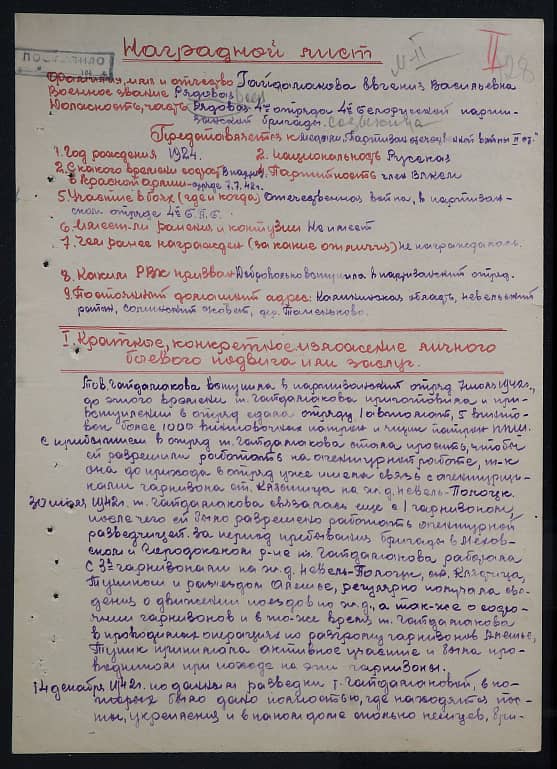 Наградной лист
Фамилия, имя и отчество Гайдамакова Евгения Васильевна
Военное звание Рядовая
Должность, часть Рядовая 4го отряда 4й Белорусской парти-
занской бригады.
Представляется к медали "Партизан отечественной войны II ст."
1. Год рождения 1924. 2. Национальность Русская
2. С какого времени состоит в партиз. 4. Партийность член ВЛКСМ
в Красной армии отряде 7.7.42г.
5. Участие в боях (где и когда) Отечественная война, в партизан-
ском отряде 4й Б.П.Б.
6. Имеет-ли ранения и контузии Не имеет
7. Чем ранее награжден (за какие отличия) Не награждалась.
8. Каким РВК призван Добровольно вступила в партизанский отряд.
9. Постоянный домашний адрес: Калининская область, Невельский
район, сельский совет, дер.
I. Краткое, конкретное изложение личного
боевого подвига или заслуг.
Тов. Гайдамакова вступила в партизанский отряд 7 июля 1942г.,
до этого времени т. Гайдамакова приготовила и при
вступлении в отряд сдала отряду 1 автомат, 5 винто-
вок более 1000 винтовочных патрон и ящик патрон ППШ.
С прибытием в отряд т. Гайдамакова стала просить, чтобы
ей разрешили работать на агентурной работе, т-к
она до прихода в отряд уже имела связь с агентурщи-
ками гарнизона ст. Клястица на ж.д. Невель-Полоцк.
30 июля 1942г. т. Гайдамакова связалась еще с 1 гарнизоном,
после чего ей было разрешено работать агентурной
разведчицей. За период пребывания бригады в Мехов-
ском и Городокском р-не т. Гайдамакова работала
с 3я гарнизонами на ж.д. Невель-Полоцк, ст. Клястица,
и разъездом Алеща, регулярно получала све-
дения о движении поездов по ж.д., а так-же о состо-
янии гарнизонов и в то-же время т. Гайдамакова
в проводимых операциях по разгрому гарнизонов
принимала активное участие и была про-
водником при походе на эти гарнизоны.
14 декабря 1942г. по данным разведки т. Гайдамаковой, в ко-
торых было дано полностью, где находятся пос-
ты, укрепления и в каком доме сколько немцев, бри-